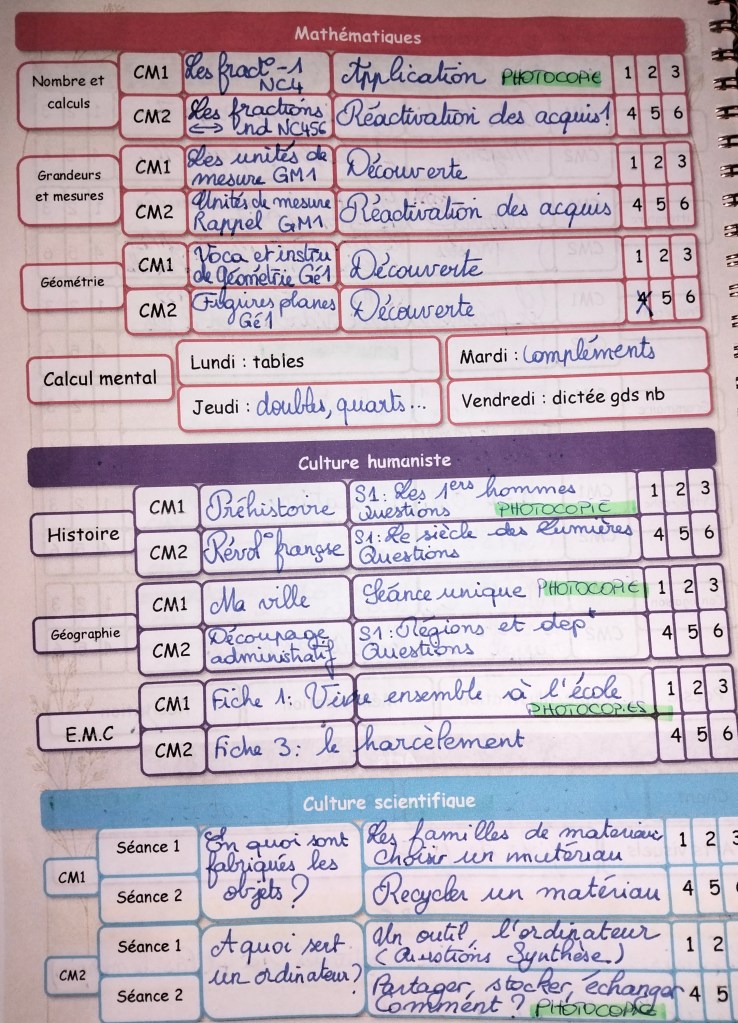 Mathématiques
Nombre et calculs
CM1 Les fract° - 1 NC4 Application PHOTOCOPIE 1 2 3
CM2 Les fractions ⟷ 2nd NC456 Réactivation des acquis! 4 5 6
Grandeurs et mesures
CM1 Les unités de mesure GM1 Découverte 1 2 3
CM2 Unités de mesure Rappel GM1 Réactivation des acquis 4 5 6
Géométrie
CM1 Voca et instru de géométrie Gé1 Découverte 1 2 3
CM2 Figures planes Gé1 Découverte 4 5 6
Calcul mental
Lundi : tables
Mardi : compléments
Jeudi : doubles, quarts...
Vendredi : dictée gds nb
Culture humaniste
Histoire
CM1 Préhistoire S1: Les 1ers hommes Questions PHOTOCOPIE 1 2 3
CM2 Révol° frangse S1: Le siècle des lumières Questions 4 5 6
Géographie
CM1 Ma ville Séance unique PHOTOCOPIE 1 2 3
CM2 Découpage administratif S1: Régions et dept Questions 4 5 6
E.M.C
CM1 Fiche 1: Vivre ensemble à l'école PHOTOCOPIES 1 2 3
CM2 Fiche 3: le harcèlement 4 5 6
Culture scientifique
CM1
Séance 1 En quoi sont fabriqués les objets ? Les familles de matériau Choisir un matériau 1 2 3
Séance 2 Recycler un matériau 4 5
CM2
Séance 1 A quoi sert un ordinateur? Un outil, l'ordinateur (Questions Synthèse) 1 2
Séance 2 Partager, stocker, échanger Comment ? PHOTOCOPIE 4 5